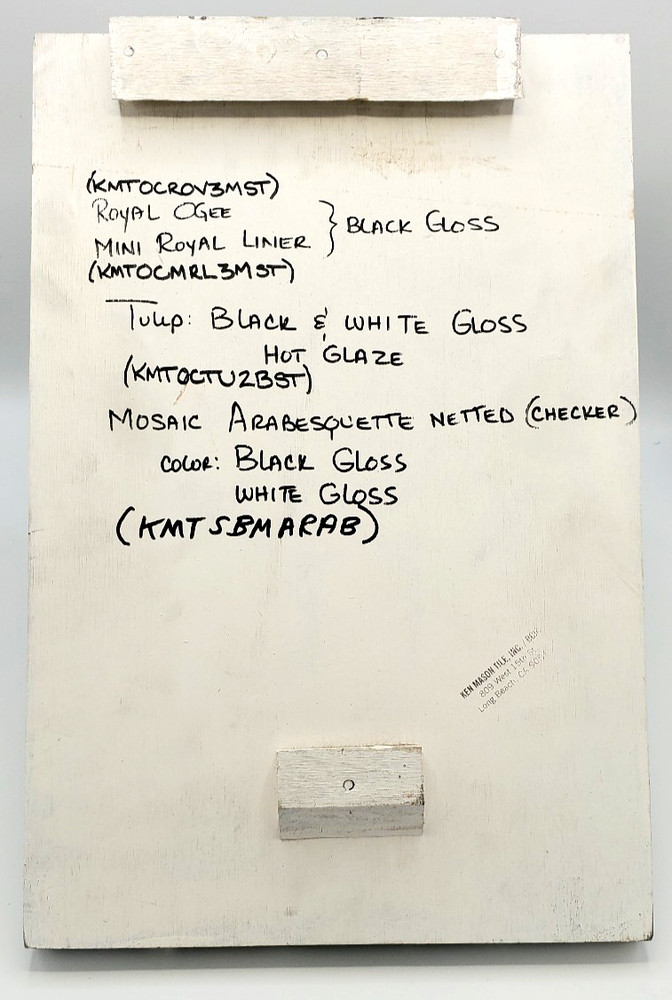 (KMTOCROV3MST)
ROYAL OGEE
MINI ROYAL LINER } BLACK GLOSS
(KMTOCMRL3MST)
Tulip: BLACK & WHITE GLOSS
HOT GLAZE
(KMTOCTU2BST)
MOSAIC ARABESQUETTE NETTED (CHECKER)
COLOR: BLACK GLOSS
WHITE GLOSS
(KMTSBMARAB)
KEN MASON TILE, INC.
809 West 15th St.
Long Beach, CA